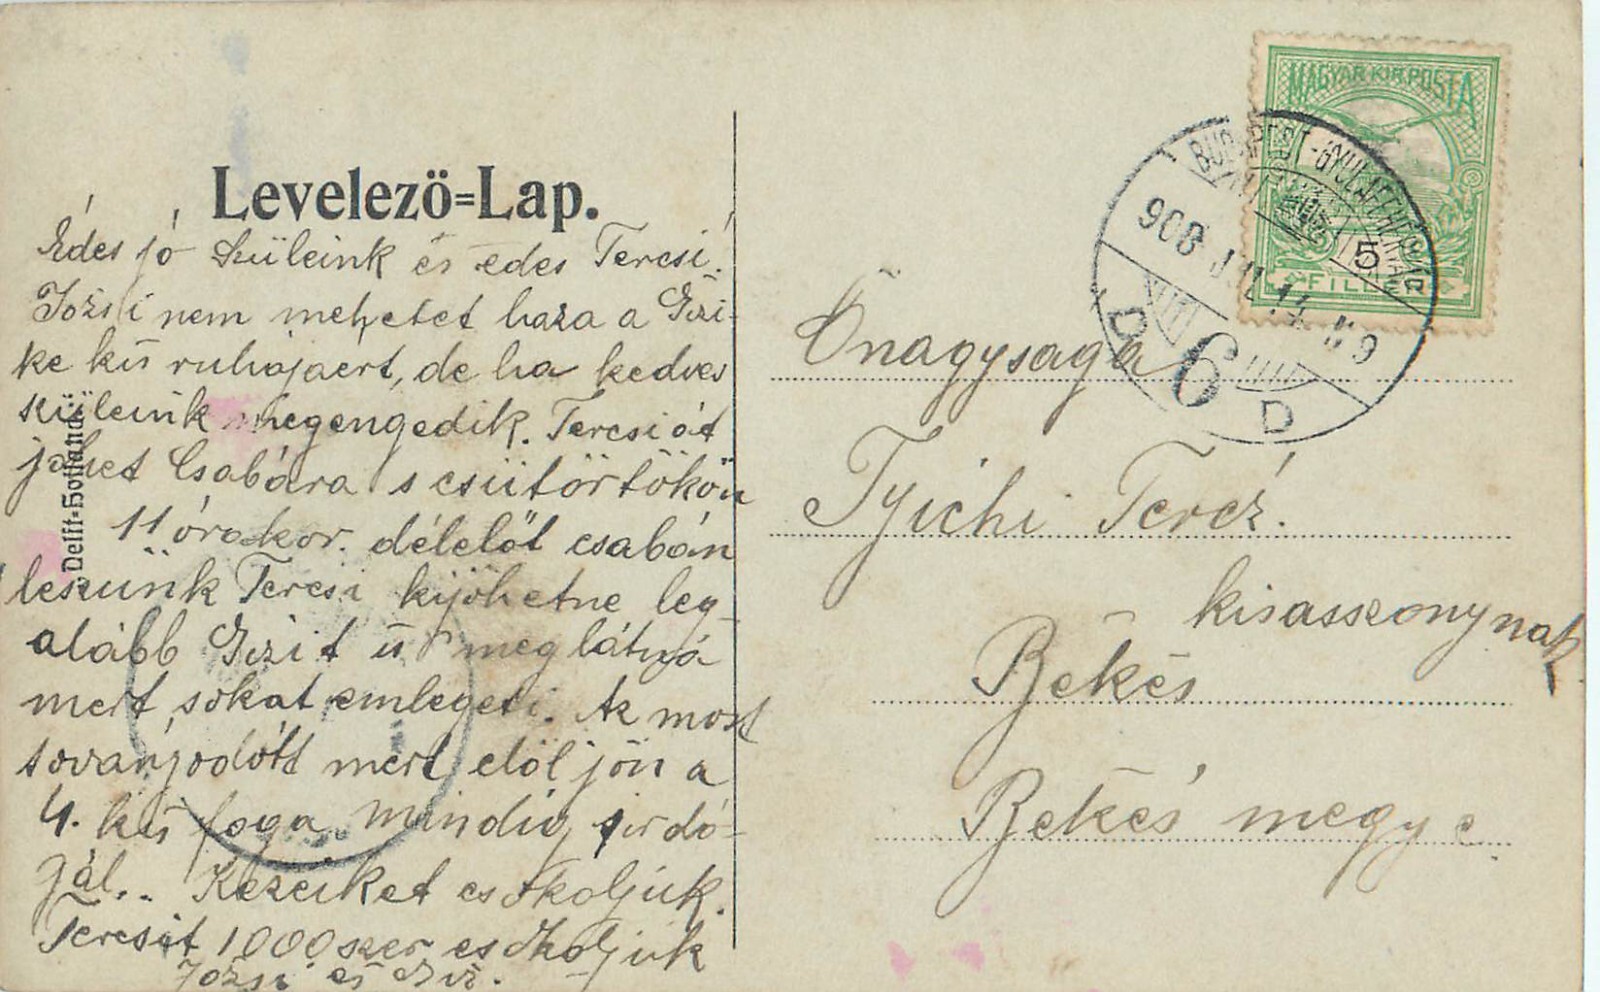 Levelezö=Lap.
Édes jó Szüleink és edes Tercsi!
Józsi nem mehetet haza a Gizi-
ke kis ruhájaért, de ha kedves
szüleink megengedik. Tercsi át
jöhet Csabára s csütörtökön
11 órakor. délelőt csabán
leszünk Tercsi kijöhetne leg-
alább Gizit is meg látná
mert sokat emlegeti. Az most
sovanyodott mert elöl jön a
4. kis foga mindig sirdo-
gál.. Kezeiket csókoljuk.
Tercsit 1000szer csókoljuk
Józsi és Gizi.
Delft-Holland
MAGYAR KIR. POSTA
5
FILLÉR
BUDAPEST-GYULAFEHÉRVÁR
908 JUL 14
D 6 D
Önagysaga
Tyichi Teréz.
kisasszonynak
Bekés
Bekés megye.